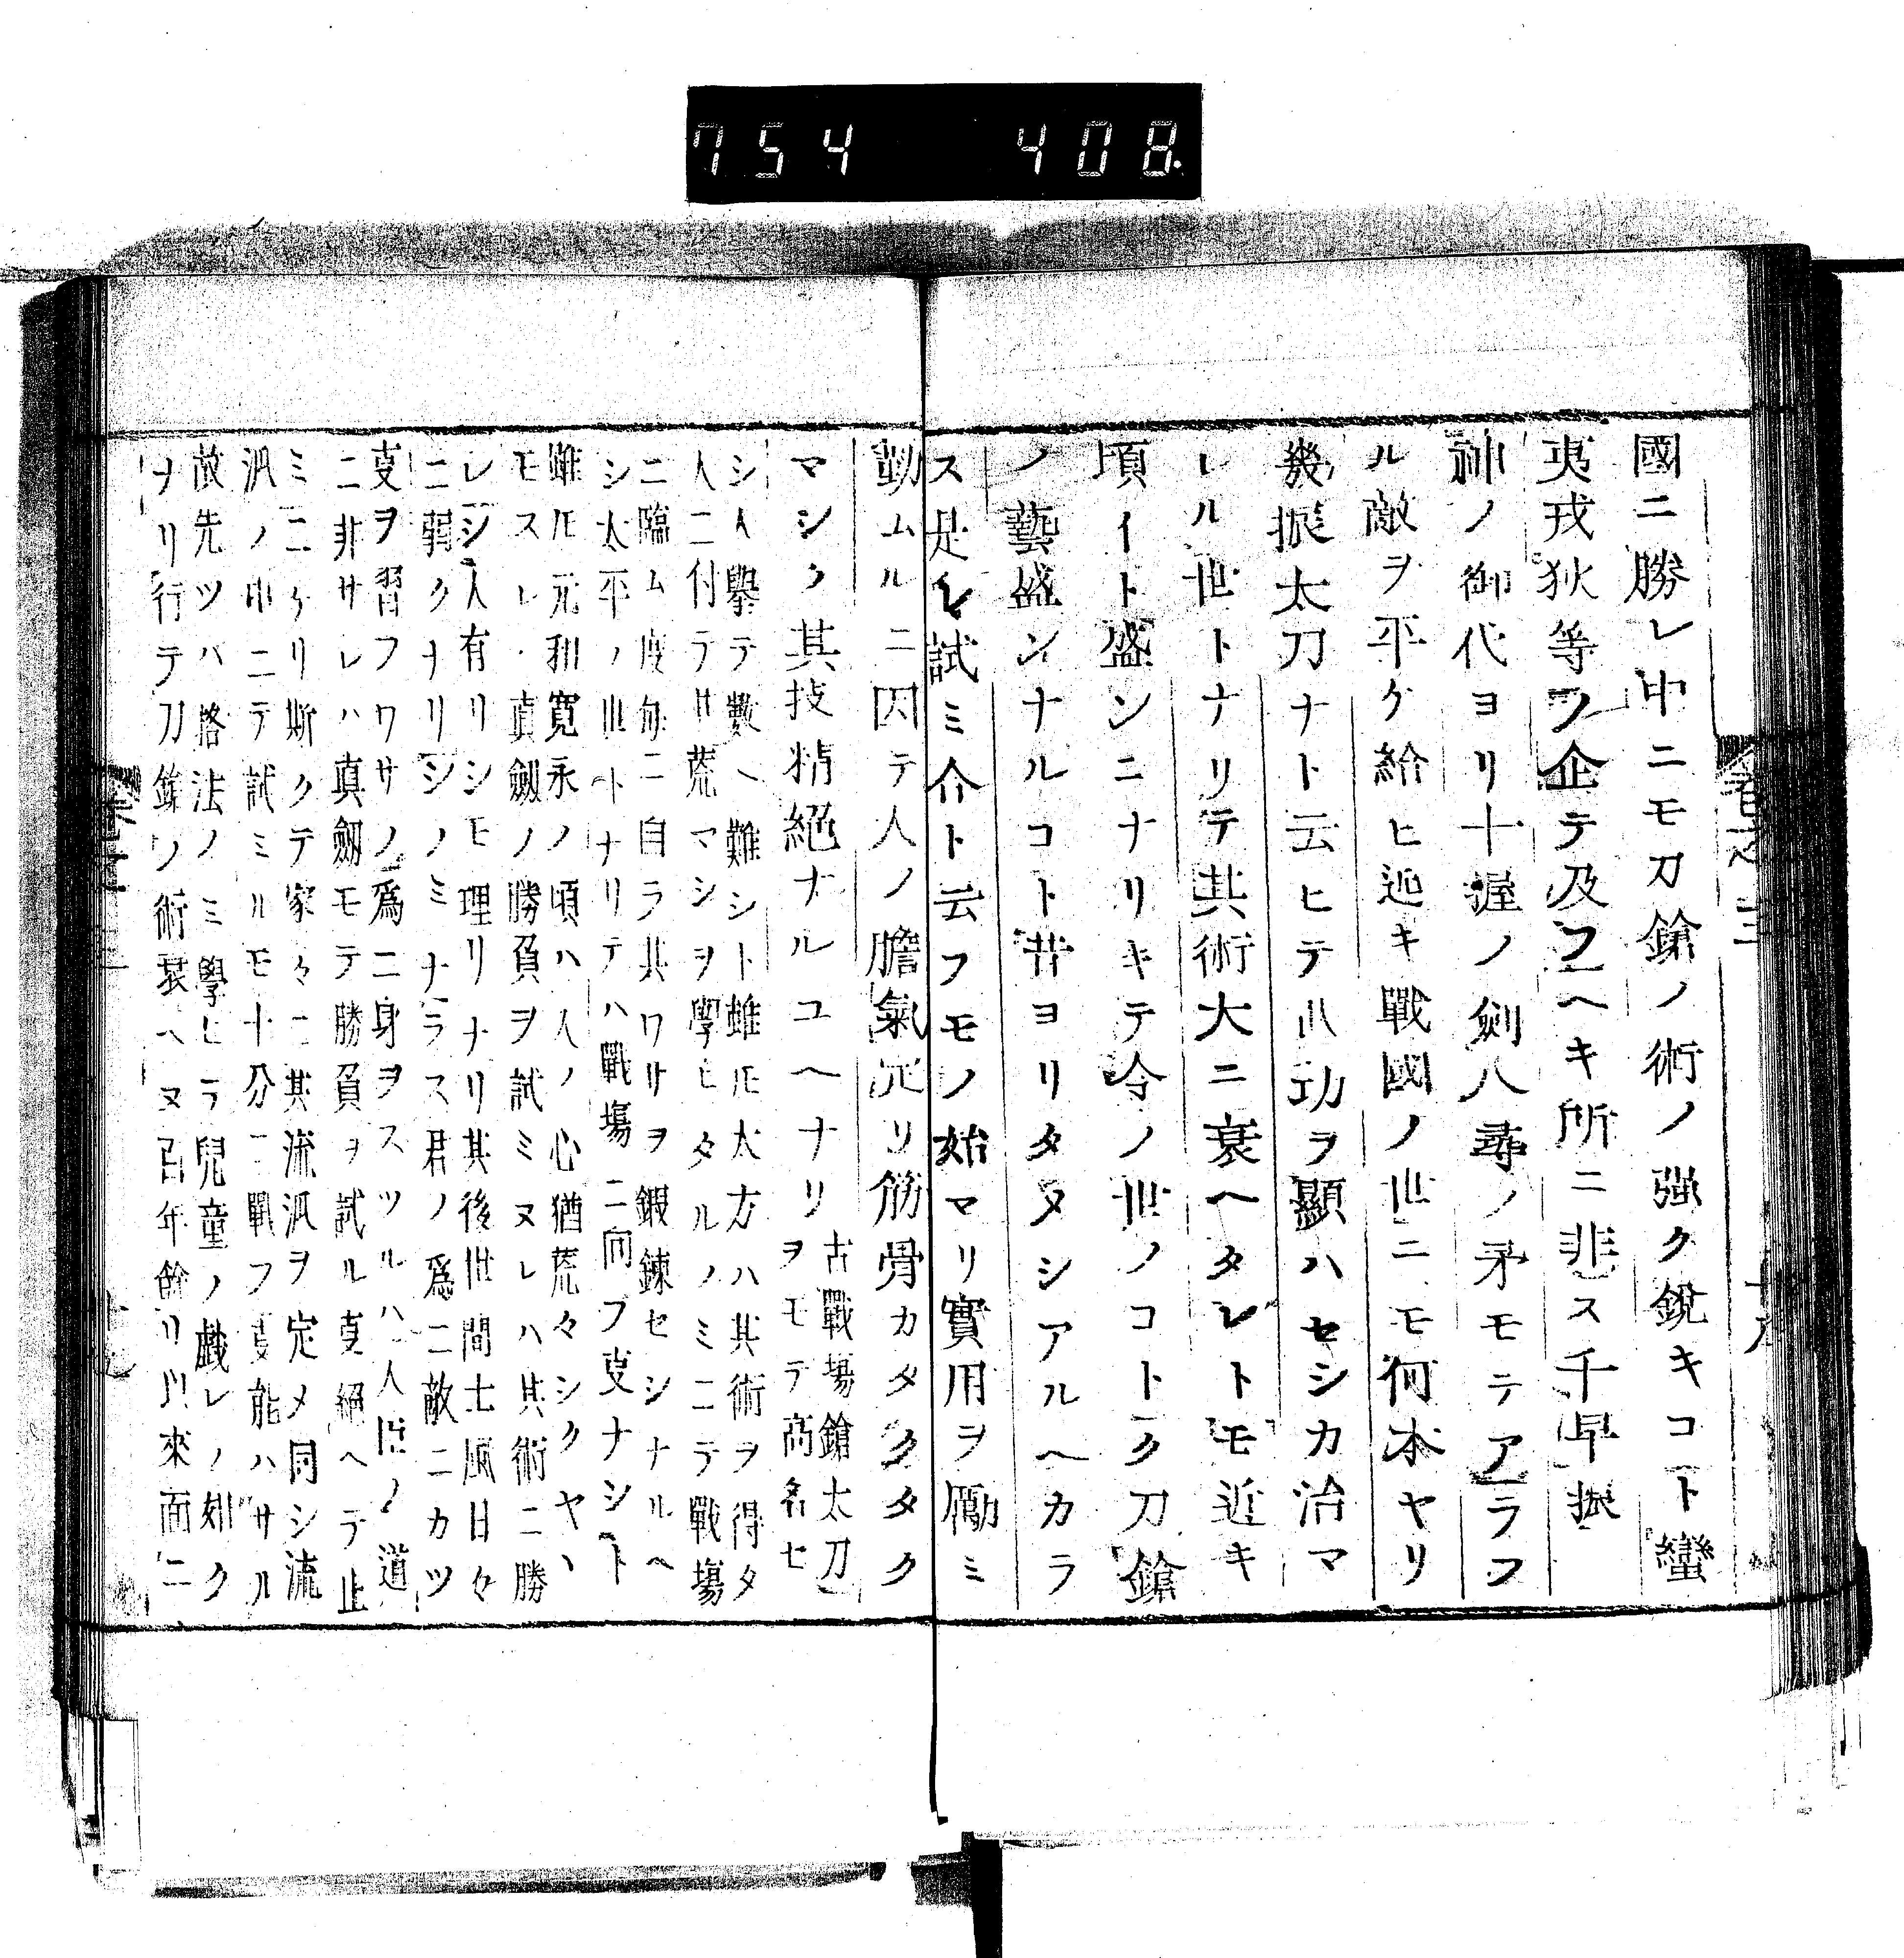 754 408
國ニ勝レ中ニモ刀鎗ノ術ノ強ク銳キコト蠻
夷戎狄等フ企テ及フヘキ所ニ非ス千早振
神ノ御代ヨリ十握ノ劍八尋ノ矛モテアラフ
ル敵ヲ平ケ給ヒ近キ戰國ノ世ニモ何本ヤリ
幾振太刀ナト云ヒテ功ヲ顯ハセシカ治マ
レル世トナリテ其術大ニ衰ヘタレトモ近キ
頃イト盛ンニナリキテ今ノ世ノコトク刀鎗
ノ藝盛ンナルコト昔ヨリタメシアルヘカラ
ス是レ試ミ合ト云フモノ始マリ實用ヲ勵ミ
勤ムルニ因テ人ノ膽氣定リ筋骨カタククタク
マシク其技精絕ナルユヘナリ
古戰場鎗太刀
ヲモテ高名セ
シ人擧テ數ヘ難シト雖𪜈大方ハ其術ヲ得タ
人ニ付テ荒マシヲ學ヒタルノミニテ戰場
ニ臨ム度每ニ自ラ其ワサヲ鍜錬セシナルヘ
シ太平ノ世トナリテハ戰場ニ向フ㕝ナシト
雖𪜈元和寬永ノ頃ハ人ノ心猶荒々シクヤヽ
モスレハ真劔ノ勝負ヲ試ミヌレハ其術ニ勝
レシ人有リシモ理リナリ其後世間士風日々
ニ弱クナリシノミナラス君ノ爲ニ敵ニカツ
㕝ヲ習フワサノ爲ニ身ヲスツルハ人臣ノ道
ニ非サレハ真劔モテ勝負ヲ試ル㕝絕ヘテ止
ミニケリ斯クテ家々ニ其流派ヲ定メ同シ流
派ノ中ニテ試ミルモ十分ニ戰フ㕝能ハサル
故先ツハ格法ノミ學ヒテ兒童ノ戲レノ如ク
ナリ行テ刀鎗ノ術衰ヘヌ百年餘リ以來面ニ